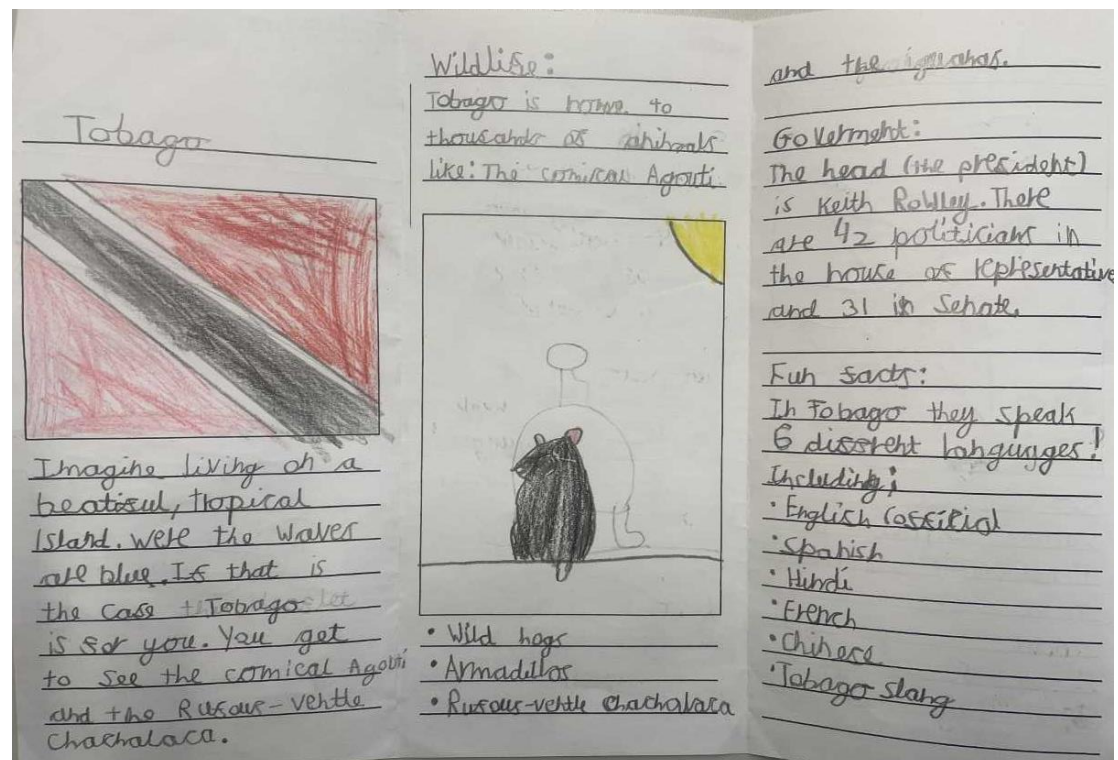 Tobago
Imagine living on a
beatiful, tropical
Island. were the waves
are blue. If that is
the case Tobago
is for you. You get
to see the comical Agouti
and the Rufous-ventle
Chachalaca.
Wildlife:
Tobago is home to
thousands of animals
like: The comical Agouti
• Wild hogs
• Armadillos
• Rufous-ventle Chachalaca
and the iguanas.
Goverment:
The head (the president)
is Keith Rowley. There
are 42 politicians in
the house of representative
and 31 in Senate.
Fun facts:
In Tobago they speak
6 diffrent languages!
Including;
• English (official
• Spanish
• Hindi
• French
• Chinese
• Tobago slang